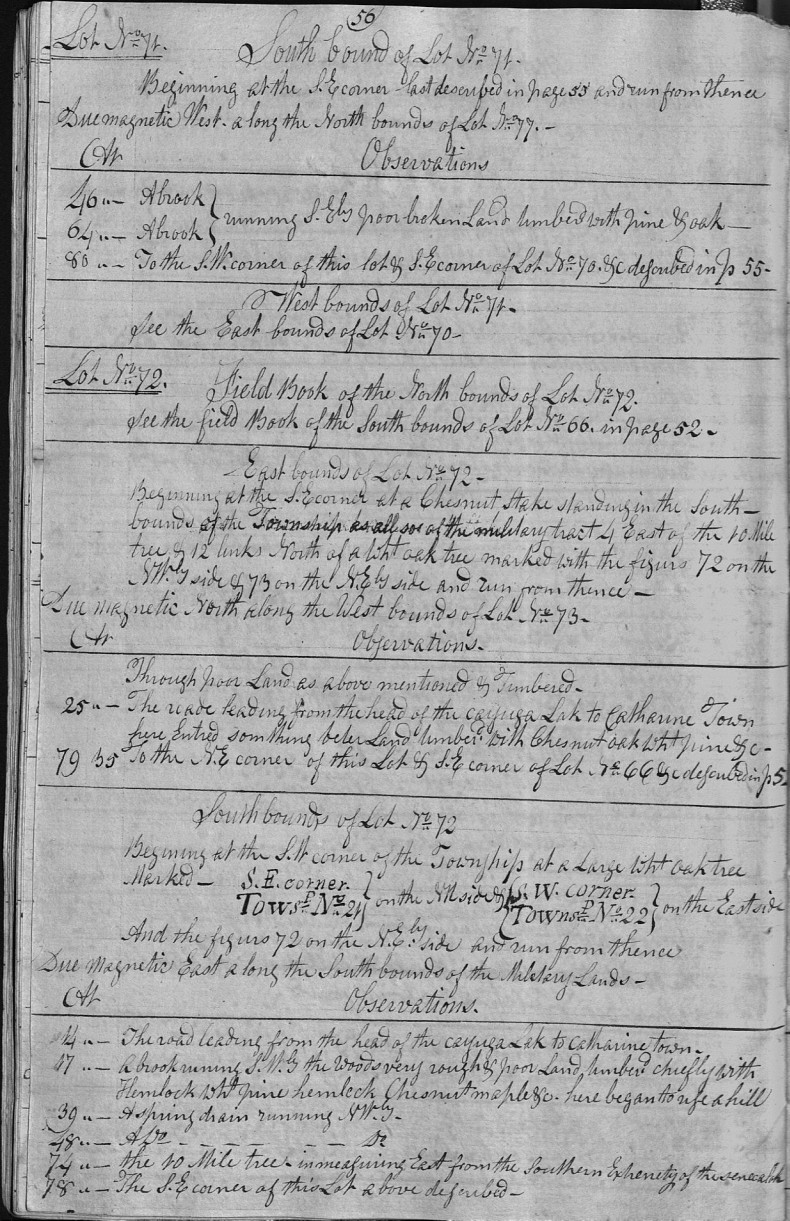 56
Lot No. 71. South bound of Lot No. 71.
Beginning at the S.E corner last described in page 55 and run from thence
Due magnetic West. along the North bounds of Lot No. 77.-
Ch Observations
46 "- A brook } running S. Ely poor broken Land timberd with pine & oak -
64 "- A brook
80 "- To the S.W. corner of this lot & S.E corner of Lot No. 70. &c described in p 55-
West bounds of Lot No. 71-
See the East bounds of Lot No. 70-
Lot No. 72. Field Book of the North bounds of Lot No. 72.
See the field Book of the South bounds of Lot No. 66. in page 52.
East bounds of Lot No. 72-
Beginning at the S.E corner at a Chesnut Stake standing in the South-
bounds of the Township as all so of the military tract 4 East of the 10 Mile
tree & 12 links North of a Wht oak tree marked with the figurs 72 on the
NWly side & 73 on the N.Ely side and run from thence -
Due magnetic North along the West bounds of Lot No. 73-
Ch Observations.
Through poor Land as above mentioned & Timbered-
25 "- The roade leading from the head of the cayuga Lak to Catharine Town
here Entred somthing beter Land timberd with Chesnut oak wht pine &c-
79 35 To the N.E corner of this Lot & S.E corner of Lot No. 66 &c described in p 5
South bounds of Lot No. 72
Begining at the S.W corner of the Township at a Large Wht oak tree
Marked - S.E. corner. } on the side & { S.W. corner. } on the East side
Townsp. No. 21 Townsp. No. 22
And the figurs 72 on the N.Ely. side and run from thence
Due Magnetic East along the South bounds of the Military Lands-
Ch Observations.
14 "- The road leading from the head of the cayuga Lak to Catharine town.
17 "- a brook runing S.Wly the woods very rough & poor Land timberd chiefly with
Hemlock wht pine hemlock Chesnut maple &c. here began to rise a hill
39 "- A spring drain running NWly-
48 "- A Do - - - - - - - Do
74 "- the 10 Mile tree - in measuring East from the Southern Extremety of the seneca Lak
78 "- The S.E corner of this Lot above described-